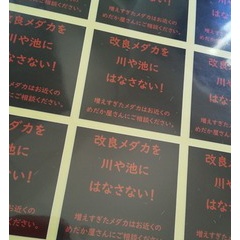 増えすぎたメダカはお近くの
めだか屋さんにご相談ください。
改良メダカを
川や池に
はなさない！
増えすぎたメダカはお近くの
めだか屋さんにご相談ください。
改良メダカを
川や池に
はなさない！
増えすぎたメダカはお近くの
めだか屋さんにご相談ください。